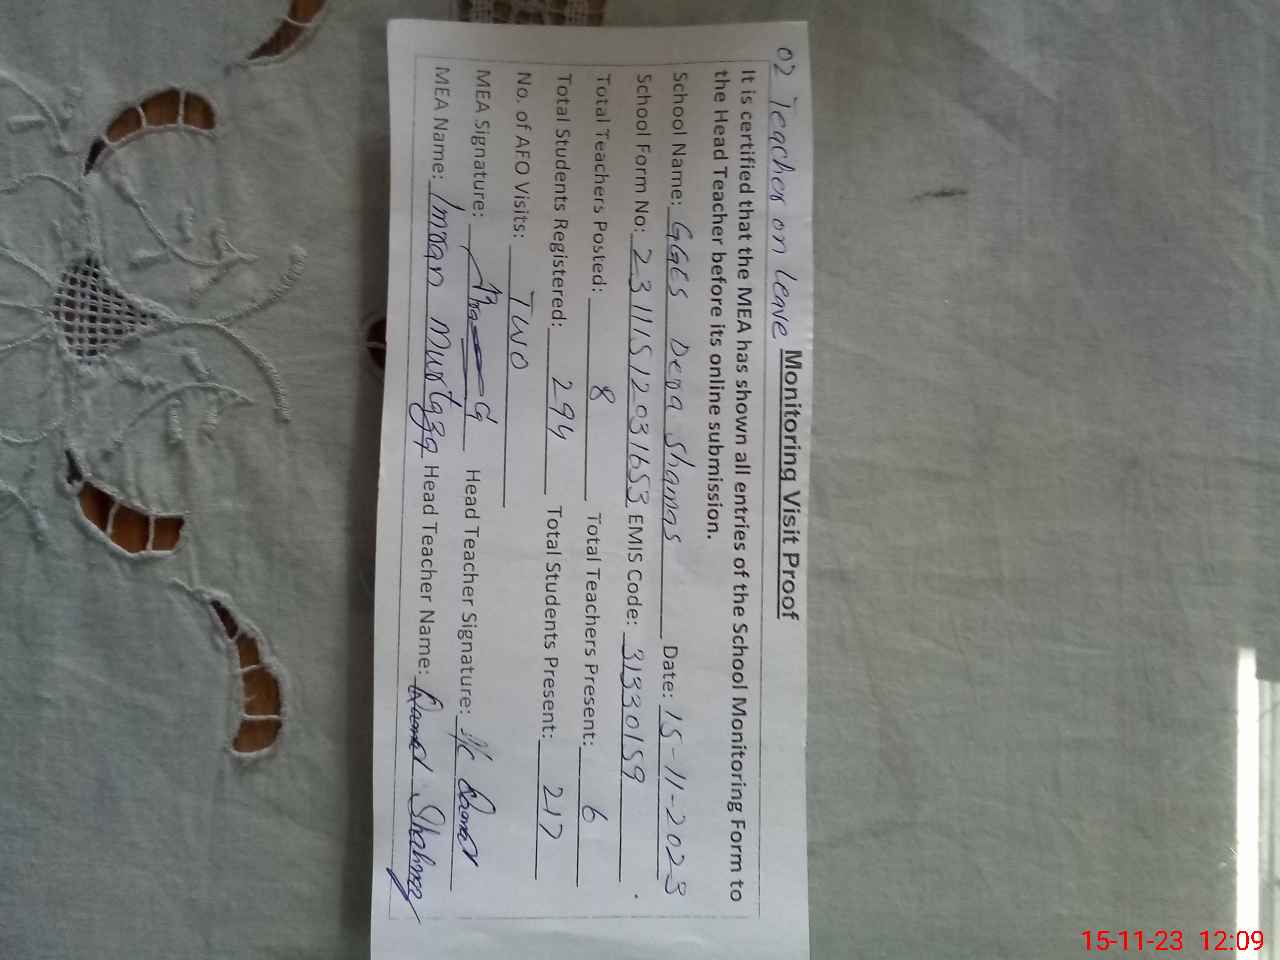 02 Teacher on leave
Monitoring Visit Proof
It is certified that the MEA has shown all entries of the School Monitoring Form to
the Head Teacher before its online submission.
School Name: GGES Dera Shamas Date: 15-11-2023
School Form No: 23111512031653 EMIS Code: 31330159
Total Teachers Posted: 8 Total Teachers Present: 6
Total Students Registered: 294 Total Students Present: 217
No. of AFO Visits: Two
MEA Signature: Head Teacher Signature: I/c
MEA Name: Imran Murtaza Head Teacher Name: Shaheen
15-11-23 12:09